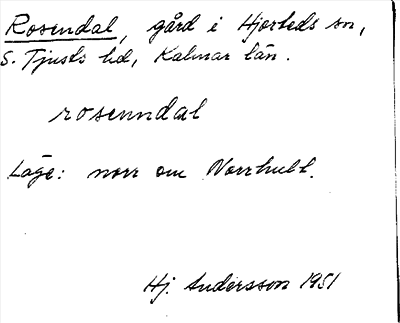 Rosendal, gård i Hjorteds sn,
S. Tjusts hd, Kalmar län.
rosenndal
Läge: norr om Norrhult.
Hj. Andersson 1951